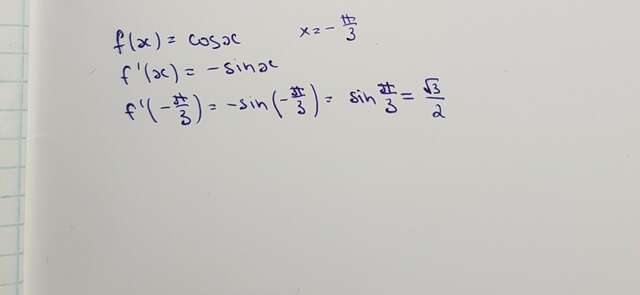 f(x) = cosx x = -π/3
f'(x) = -sinx
f'(-π/3) = -sin(-π/3) = sin π/3 = √3/2